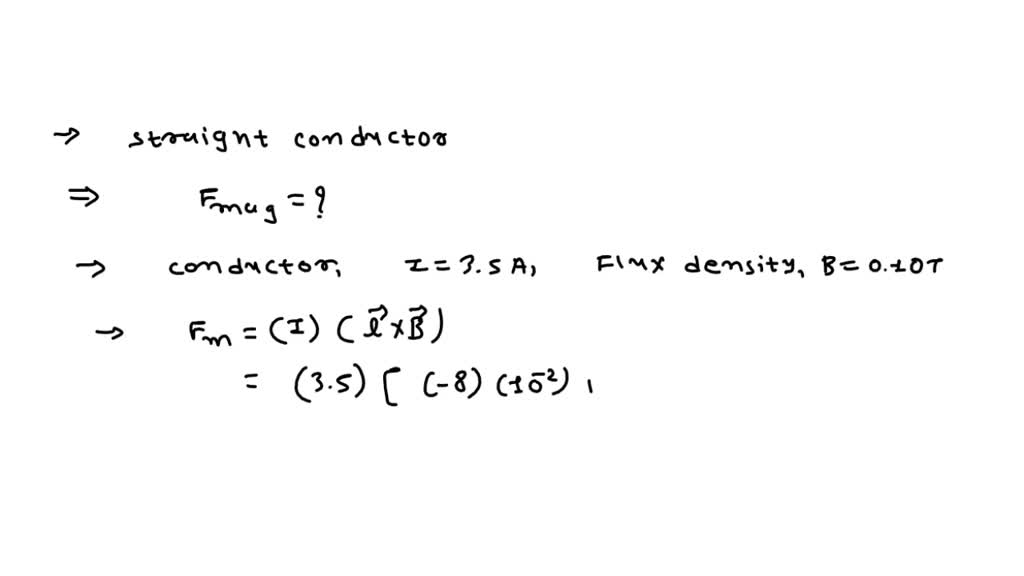 → straight conductor
⇒ Fmag = ?
→ conductor, I = 3.5 A, Flux density, B = 0.10T
→ Fm = (I) (l⃗ × B⃗)
= (3.5) [ (-8) (10⁻²)